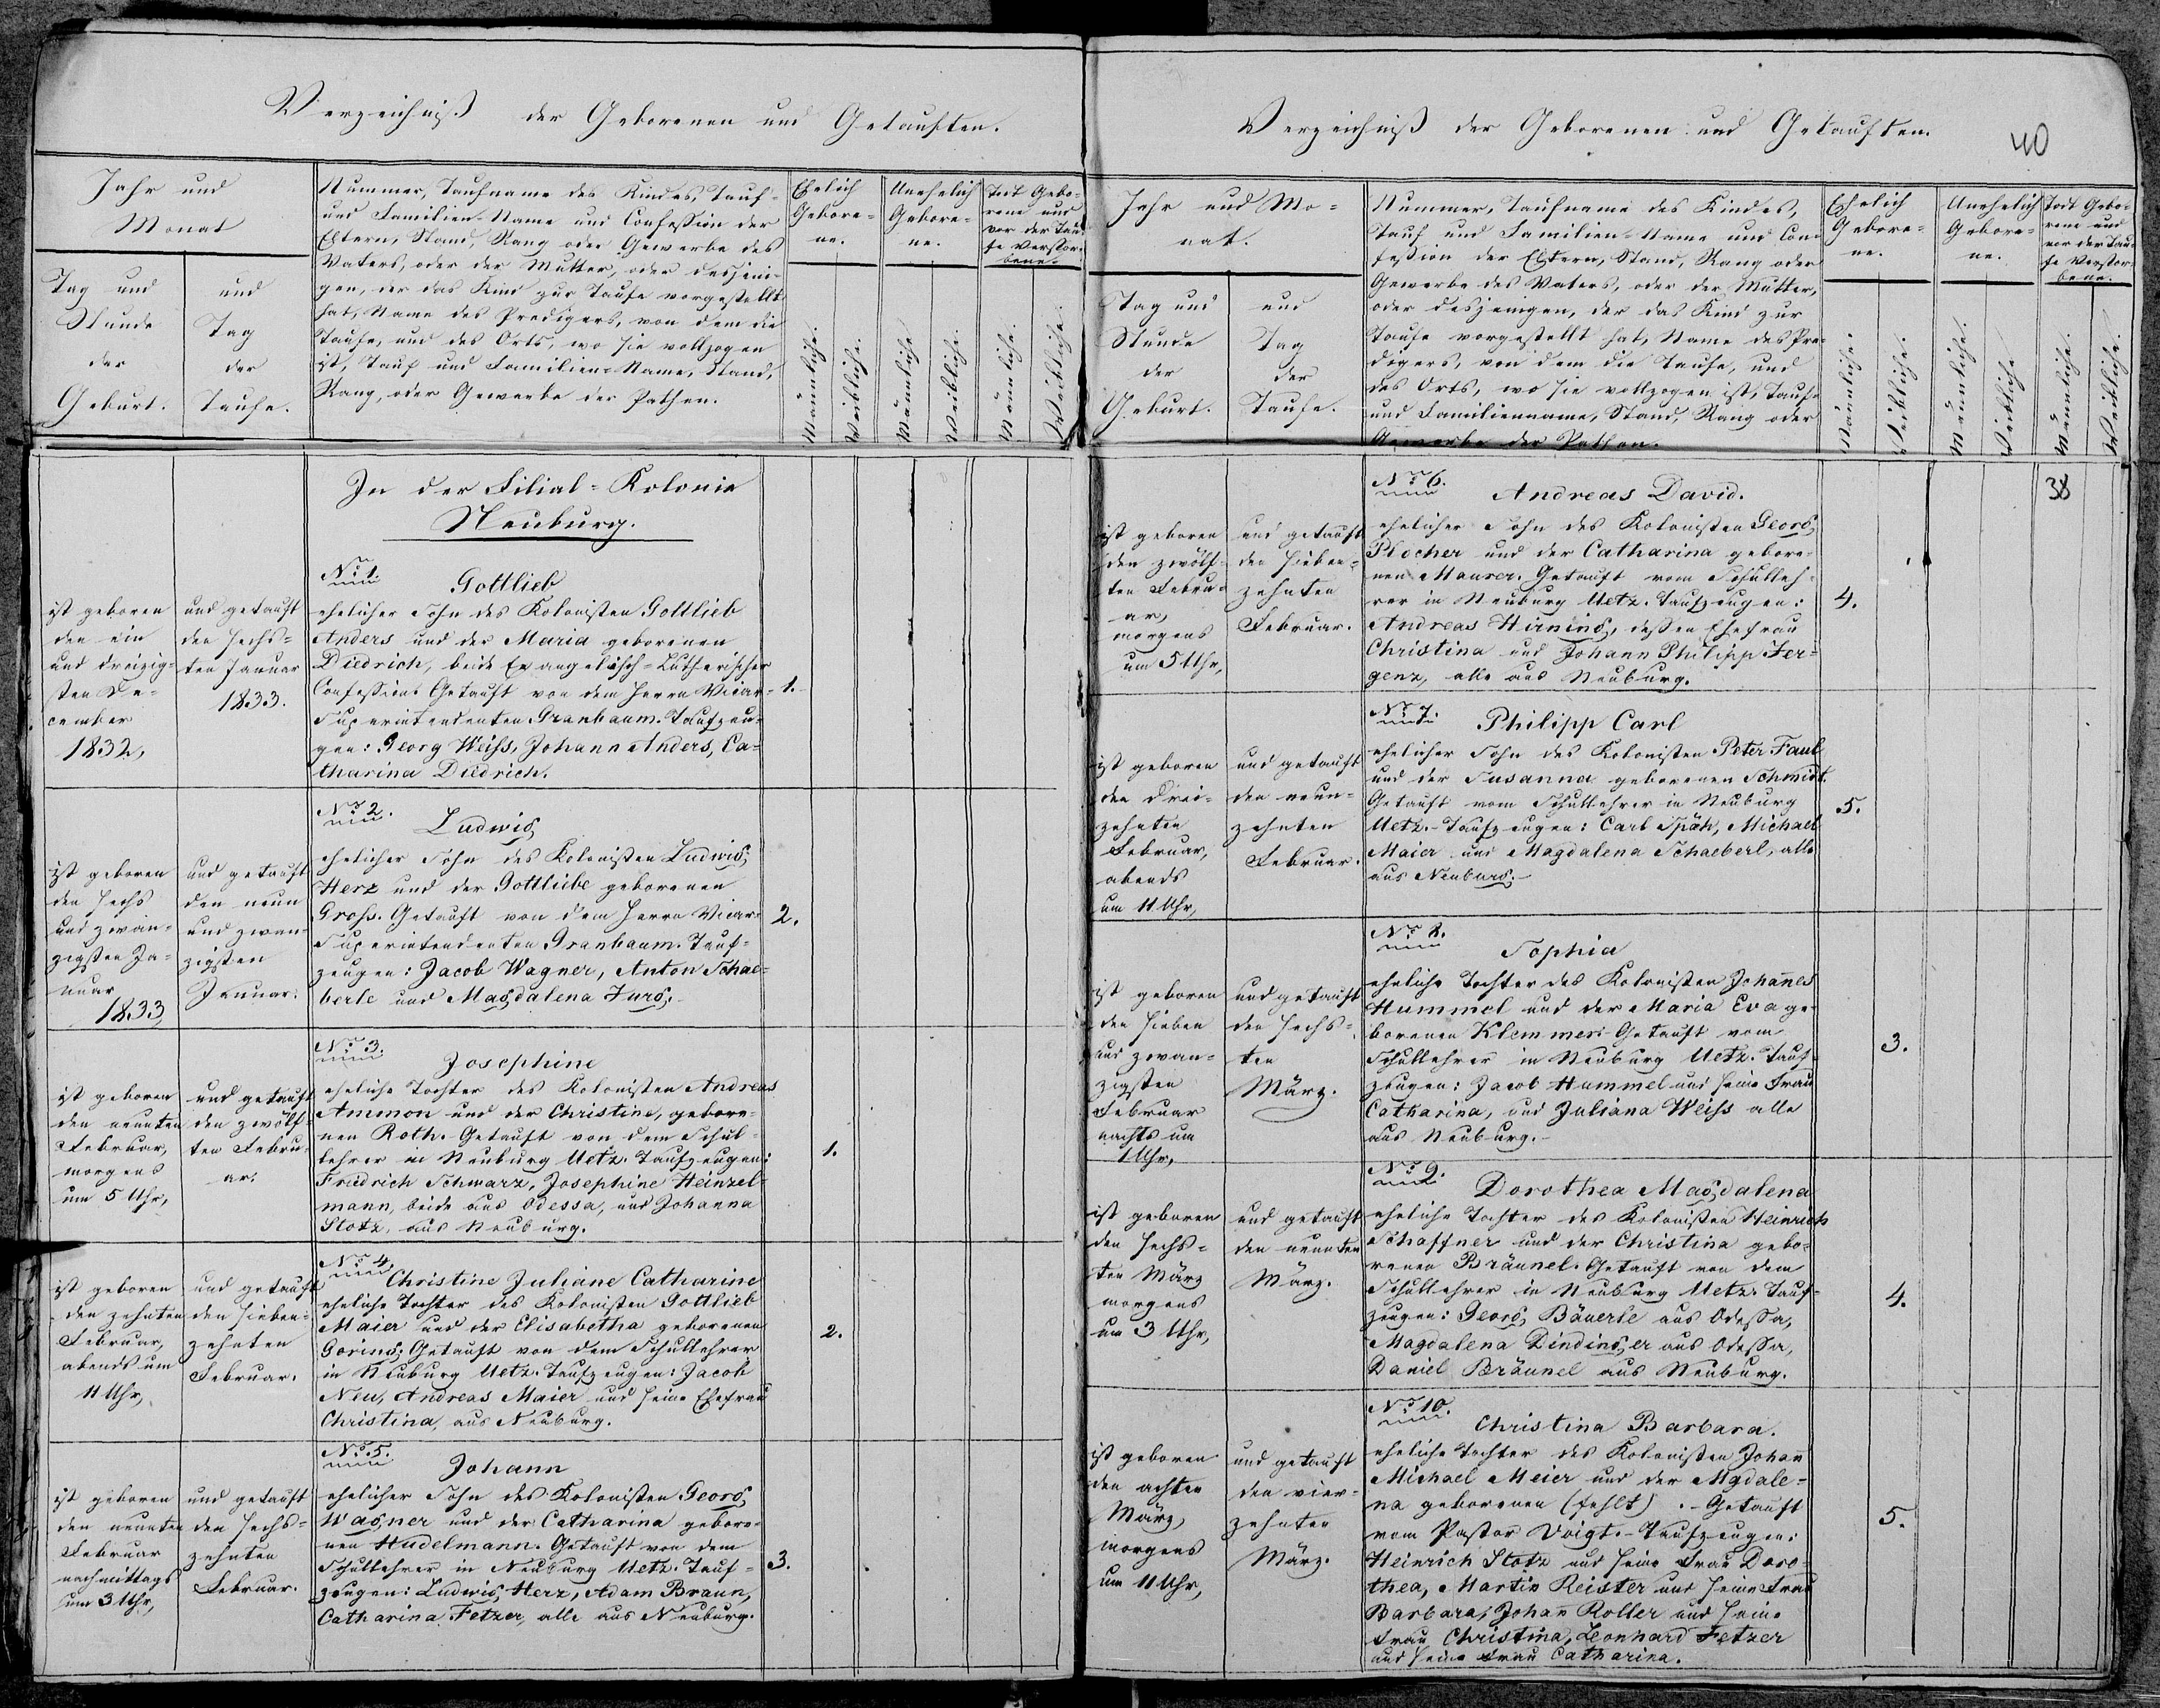 Verzeichniß der Geborenen und Getauften.
Jahr und
Monat
Tag und
Stunde
der
Geburt.
und
Tag
der
Taufe.
Nummer, Taufname des Kindes, Tauf-
und Familien-Name und Confession der
Eltern, Stand, Rang oder Gewerbe des
Vaters, oder der Mutter, oder desjeni-
gen, der das Kind zur Taufe vorgestellt
hat, Name des Predigers, von dem die
Taufe, und des Orts, wo sie vollzogen
ist, Tauf und Familien-Name, Stand,
Rang, oder Gewerbe der Pathen.
Ehelich
Gebore-
ne.
Unehelich
Gebore-
ne.
Todt Gebo-
rene und
vor der Tau-
fe Verstor-
bene.
Männliche.
Weibliche.
Männliche
Weibliche.
Männliche.
Weibliche.
In der Filial-Kolonie
Neuburg.
ist geboren
den ein
und dreizig-
sten De-
cember
1832,
und getauft
den sechs-
ten Januar
1833.
No 1.
Gottlieb
ehelicher Sohn des Kolonisten Gottlieb
Anders und der Maria geborenen
Diedrich, beide Evangelisch-Lutherischer
Confession. Getauft von dem Herrn Vicar-
Superintendenten Granbaum. Taufzeu-
gen: Georg Weiss, Johann Anders, Ca-
tharina Diedrich.
1.
ist geboren
den sechs
und zwan-
zigsten Ja-
nuar
1833,
und getauft
den neun
und zwan-
zigsten
Januar.
No 2.
Ludwig
ehelicher Sohn des Kolonisten Ludwig
Herz und der Gottliebe geborenen
Gross. Getauft von dem Herrn Vicar-
Superintendenten Granbaum. Tauf-
zeugen: Jacob Wagner, Anton Schae-
berle und Magdalena Jurg.
2.
ist geboren
den neunten
Februar,
morgens
um 5 Uhr,
und getauft
den zwölf-
ten Febru-
ar.
No 3.
Josephine
eheliche Tochter des Kolonisten Andreas
Ammon und der Christine, gebore-
nen Roth. Getauft von dem Schul-
lehrer in Neuburg Uetz. Taufzeugen:
Friedrich Schwarz, Josephine Heinzel-
mann, beide aus Odessa, und Johanna
Stotz, aus Neuburg.
1.
ist geboren
den zehnten
Februar,
abends um
11 Uhr,
und getauft
den sieben-
zehnten
Februar.
No 4.
Christine Juliane Catharine
eheliche Tochter des Kolonisten Gottlieb
Maier und der Elisabetha geborenen
Goring. Getauft von dem Schullehrer
in Neuburg Uetz. Taufzeugen: Jacob
Neu, Andreas Maier und seine Ehefrau
Christina, aus Neuburg.
2.
ist geboren
den neunten
Februar
nachmittags
um 3 Uhr,
und getauft
den sechs-
zehnten
Februar.
No. 5.
Johann
ehelicher Sohn des Kolonisten Georg
Wagner und der Catharina gebore-
nen Hudelmann. Getauft von dem
Schullehrer in Neuburg Uetz. Tauf-
zeugen: Ludwig Herz, Adam Braun,
Catharina Fetzer, alle aus Neuburg.
3.
Verzeichniß der Geborenen und Getauften.
40
Jahr und Mo-
nat.
Tag und
Stunde
der
Geburt.
und
Tag
der
Taufe.
Nummer, Taufname des Kindes,
Tauf und Familien-Name und Con-
fession der Eltern, Stand, Rang oder
Gewerbe des Vaters, oder der Mutter,
oder desjenigen, der das Kind zur
Taufe vorgestellt hat, Name des Pre-
digers, von dem die Taufe, und
des Orts, wo sie vollzogen ist, Tauf-
und Familienname, Stand, Rang oder
Gewerbe der Pathen.
Ehelich
Gebore-
ne.
Unehelich
Gebore-
ne.
Todt Gebo-
rene und
vor der Tau-
fe Verstor-
bene.
Männliche.
Weibliche.
Männliche.
Weibliche
Männliche.
Weibliche.
38
ist geboren
den zwölf-
ten Febru-
ar,
morgens
um 5 Uhr,
und getauft
den sieben-
zehnten
Februar.
No 6.
Andreas David.
ehelicher Sohn des Kolonisten Georg
Plocher und der Catharina gebore-
nen Maurer. Getauft vom Schulleh-
rer in Neuburg Uetz. Taufzeugen:
Andreas Hirning, dessen Ehefrau
Christina und Johann Philipp Jer-
genz, alle aus Neuburg.
4.
ist geboren
den drei-
zehnten
Februar,
abends
um 11 Uhr,
und getauft
den neun-
zehnten
Februar.
No 7.
Philipp Carl
ehelicher Sohn des Kolonisten Peter Faul
und der Susanna geborenen Schmidt.
Getauft vom Schullehrer in Neuburg
Uetz. Taufzeugen: Carl Späh, Michael
Maier und Magdalena Schaeberl, alle
aus Neuburg.
5.
ist geboren
den sieben
und zwan-
zigsten
Februar
nachts um
1 Uhr,
und getauft
den sechs-
ten
März.
No 8.
Sophia
eheliche Tochter des Kolonisten Johannes
Hummel und der Maria Eva ge-
borenen Klemmer. Getauft vom
Schullehrer in Neuburg Uetz. Tauf-
zeugen: Jacob Hummel und seine Frau
Catharina, und Juliana Weiss alle
aus Neuburg.
3.
ist geboren
den sechs-
ten März
morgens
um 3 Uhr,
und getauft
den neunten
März.
No 9.
Dorothea Magdalena
eheliche Tochter des Kolonisten Heinrich
Schaffner und der Christina gebo-
renen Bräunel. Getauft von dem
Schullehrer in Neuburg Uetz. Tauf-
zeugen: Georg Bäuerle aus Odessa,
Magdalena Dindinger aus Odessa,
Daniel Bräunel aus Neuburg.
4.
ist geboren
den achten
März,
morgens
um 11 Uhr,
und getauft
den vier-
zehnten
März.
No 10.
Christina Barbara.
eheliche Tochter des Kolonisten Johann
Michael Meier und der Mgdale-
na geborenen (fehlt). - Getauft
vom Pastor Voigt. - Taufzeugen:
Heinrich Stotz und seine Frau Doro-
thea, Martin Reister und seine Frau
Barbara, Johann Roller und seine
Frau Christina, Leonhard Fetzer
und seine Frau Catharina.
5.